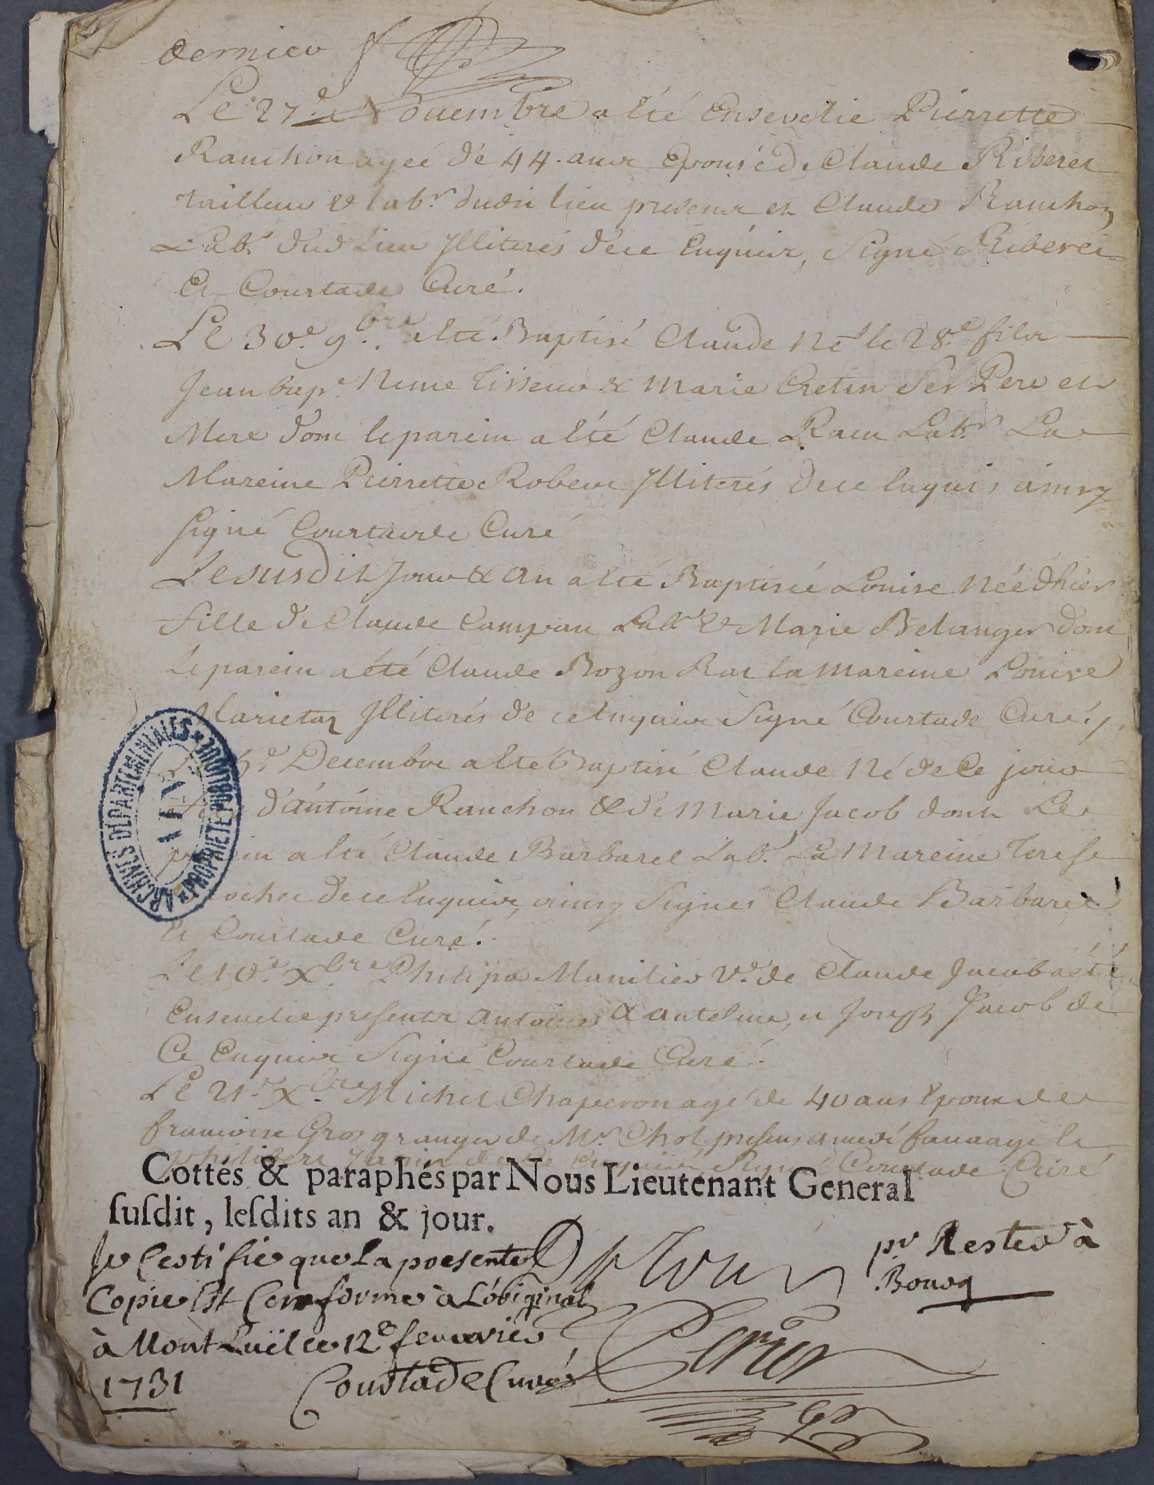 dernier
Le 27.e Novembre a été Ensevelie Pierrette
Ranchon agée de 44. ans Epouse de Claude Riberet
tailleur & lab.r dudit lieu presens et Claude Ranchon
Lab.r dud. Lieu Illiterés de ce Enquis, Signé Riberet
Et Courtade Curé.
Le 30.e 9.bre a été Baptisé Claude Né le 28.e fils
Jean bap.e Neme Tisseur & Marie Cretin Ses Pere et
Mere dont le parein a été Claude Lab.r La
Mareine Pierrette Robert Illiterés de ce Enquis
signé Courtade Curé
Le susdit Jour & an a été Baptisée Louise Née d'hier
fille de Claude Campan Lab.r & Marie Belanger dont
Le parein a été Claude Bozon la mareine Louise
Marietaz Illiterés de ce Enquis Signé Courtade Curé.
Decembre a été Baptisé Claude Né de Ce jour
d'antoine Ranchon & de Marie Jacob dont Le
a été Claude Barbaret Lab.r La Mareine Terese
de ce Enquis Signés Claude Barbaret
Et Courtade Curé.
Le 10.e X.bre Philipa Manilier V.e de Claude Jacob a été
Ensevelie presents antoine & antelme et Joseph Jacob de
Ce Enquis Signé Courtade Curé.
Le 21.e X.bre Michel Chaperon agé de 40 ans Epoux de
francoise Gros granger de M.r Chol
Signé Courtade Curé
Cottés & paraphés par Nous Lieutenant General
susdit, lesdits an & jour.
Je Certifie que La presente
Copie Est Conforme à L'original
à Montluël ce 12e feuvrier
1731 Courtade Curé
p.r Rester à
Bourg